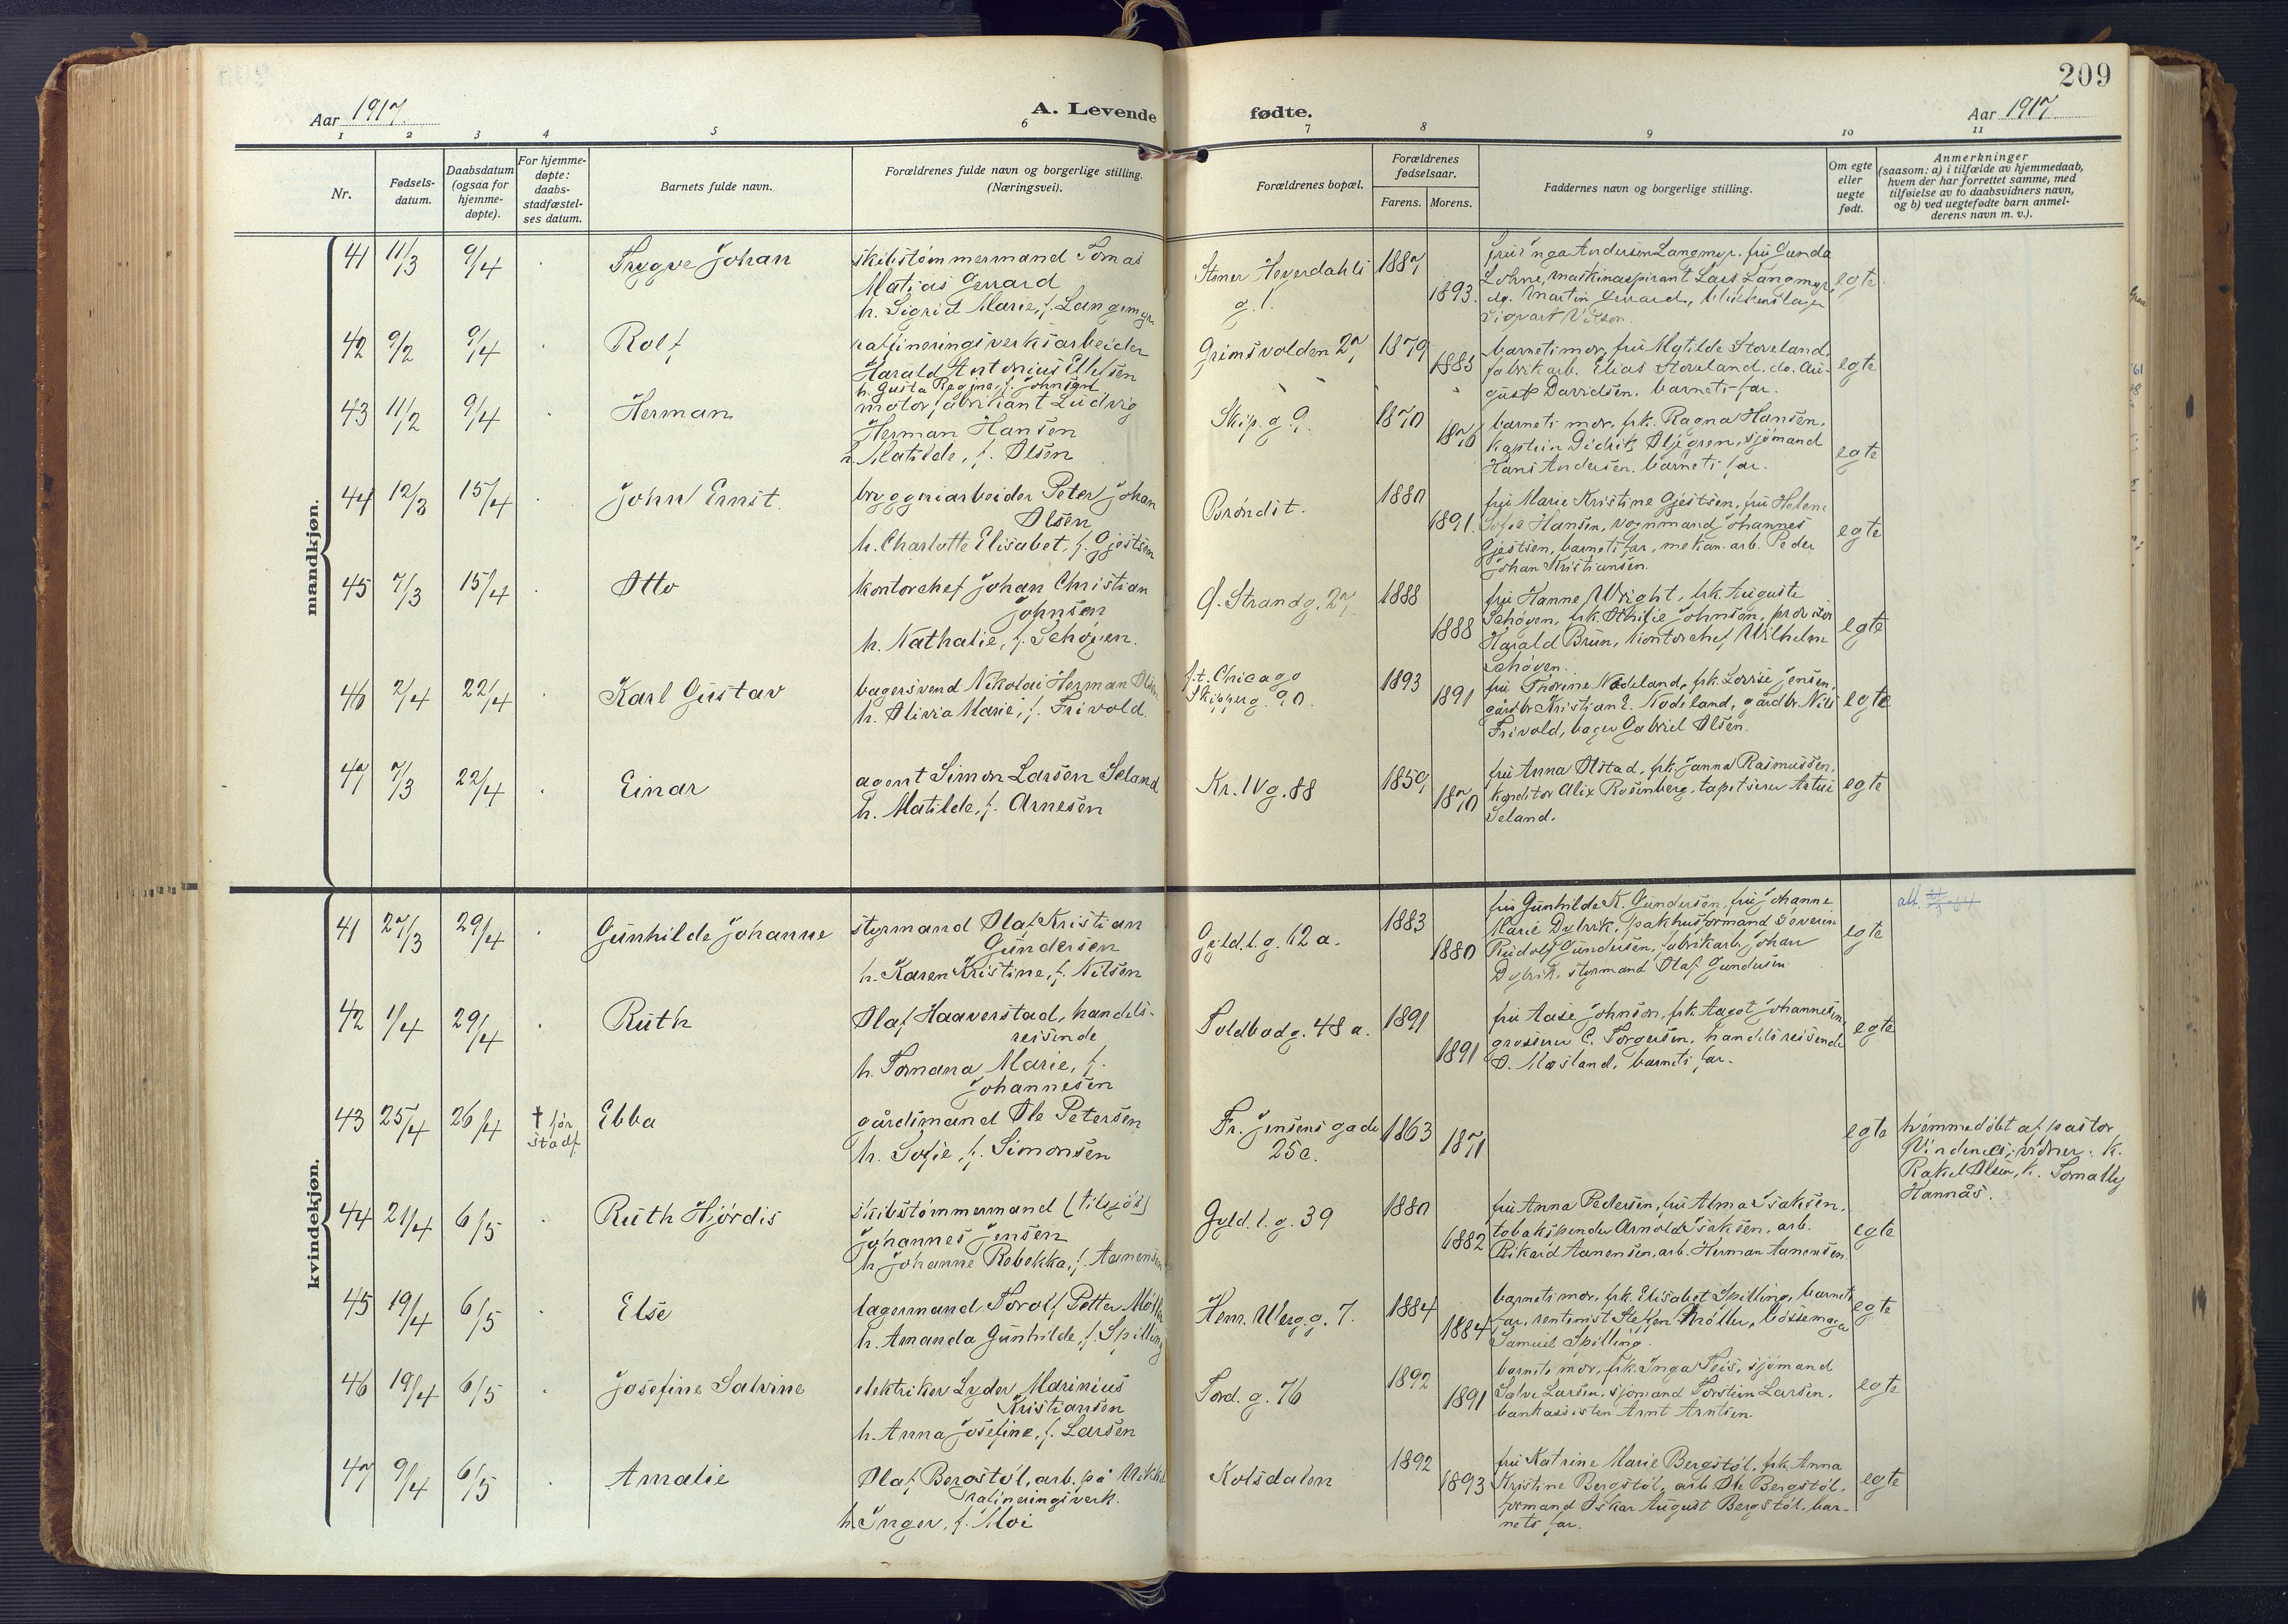 209
Aar 1917. A. Levende fødte. Aar 1917
1 2 3 4 5 6 7 8 9 10 11
Nr.
Fødsels-
datum.
Daabsdatum
(ogsaa for
hjemme-
døpte).
For hjemme-
døpte:
daabs-
stadfæstel-
ses datum.
Barnets fulde navn.
Forældrenes fulde navn og borgerlige stilling.
(Næringsvei).
Forældrenes bopæl.
Forældrenes
fødselsaar.
Farens. Morens.
Faddernes navn og borgerlige stilling.
Om egte
eller
uegte
født.
Anmerkninger
(saasom: a) i tilfælde av hjemmedaab,
hvem der har forrettet samme, med
tilføielse av to daabsvidners navn,
og b) ved uegtefødte barn anmel-
derens navn m. v.).
mandkjøn.
41 11/3 9/4 Trygve Johan
skibstømmermand Tomas
Matias Gerrard
h. Sigrid Marie, f. Langemyr
Heyerdahls
g. 1.
1887
1893.
fru Inga Andersen Langmyr. fru Gunda
Lohne, maskinaspirant Lars Langmyr,
do. Martin Gerrard,
egte
42 9/2 9/4 Rolf
rafineringsverksarbeider
Harald Antonius Ellefsen
h. Gusta Regine, f. Johnsen
Grimsvolden 27
1879
1885
barnets mor, fru Matilde Stoveland,
fabrikarb. Elias Stoveland. do. Au-
gust Davidsen. barnets far.
egte
43 11/2 9/4 Herman
motorfabrikant Ludvig
Herman Hansen
h. Matilde, f. Olsen
Skip. g. 9.
1870
1876
barnets mor, frk. Ragna Hansen,
kaptein Didrik Oljegren, sjømand
Hans Andersen. barnets far.
egte
44 12/3 15/4 John Ernst.
bryggeriarbeider Peter Johan
Olsen
h. Charlotte Elisabet, f. Gjestsen
Brøndst.
1880
1891.
fru Marie Kristine Gjestsen, fru Helene
Sofie Hansen, vognmand Johannes
Gjestsen, barnets far, mekan. arb. Peder
Johan Kristiansen.
egte
45 7/3 15/4 Otto
kontorchef Johan Christian
Johnsen
h. Nathalie, f. Schøyen.
Ø. Strandg. 27.
1888
1888
fru Hanne Wright, frk. Auguste
Schøyen, frk. Othilie Johnsen, provisor
Harald Brun, kontorchef Wilhelm
Schøyen.
egte
46 2/4 22/4 Karl Gustav
bagersvend Nikolai Herman Olsen
h. Olivia Marie, f. Frivold.
f. t. Chicago
Skipperg. 90.
1893
1891
fru Thorine Nodeland, frk. Lovise Jensen,
gårdbr. Kristian E. Nodeland, gårdbr. Nils
Frivold, bager Gabriel Olsen.
egte
47 7/3 22/4 Einar
agent Simon Larsen Seland
h. Matilde, f. Arnesen
Kr. IVg. 88
1859
1870
fru Anna Olstad, frk. Janna Rasmussen,
konditor Alix Rosenberg, tapetserer Artur
Seland.
egte
kvindekjøn.
41 27/3 29/4 Gunhilde Johanne
styrmand Olaf Kristian
Gundersen
h. Karen Kristine, f. Nilsen
Gyld. l. g. 12 a.
1883
1880
fru Gunhilde K. Gundersen, fru Johanne
Marie Dybvik, pakhusformand Severin
Rudolf Gundersen, fabrikarb. Johan
Dybvik, styrmand Olaf Gundersen
egte
42 1/4 29/4 Ruth
Olaf Haaverstad, handels-
reisende
h. Tomana Marie, f.
Johannesen
Toldbodg. 48 a.
1891
1891
fru Aase Johnson, frk. Aagot Johannesen,
grosserer C. Torgersen, handelsreisende
O. Mosland, barnets far.
egte
43 25/4 26/4 † før
stadf.
Ebba
gårdsmand Ole Petersen
h. Sofie, f. Simonsen
Fr. Jensens gade
25c.
1863
1871
egte
hjemmedøbt af pastor
Vindenes; vidner: k.
Rakel Olsen, k. Tomally
Hannås.
44 21/4 6/5 Ruth Hjørdis
skibstømmermand (tilsjøs)
Johannes Jensen
h. Johanne Rebekka, f. Aanensen
Gyld. l. g. 39
1880
1882
fru Anna Pedersen, fru Alma Isaksen,
tobakspinder Arnold Isaksen, arb.
Rikard Aanensen, arb. Herman Aanensen.
egte
45 19/4 6/5 Else
lagermand Torolf Petter Møller
h. Amanda Gunhilde, f. Spilling
Henr. Werg. g. 7.
1884
1884
barnets mor, frk. Elisabet Spilling, barnets
far, rentenist Steffen Møller, bøssemager
Samuel Spilling.
egte
46 19/4 6/5 Josefine Salvine
elektriker Lyder Marinius
Kristiansen
h. Anna Josefine, f. Larsen
Tord. g. 76
1892
1891
barnets mor, frk. Inga Teis, sjømand
Salve Larsen, sjømand Torstein Larsen,
bankassisten Arnt Arntsen
egte
47 9/4 6/5 Amalie
Olaf Bergstøl, arb. på Nikkel
rafineringsverk.
h. Inger, f. Moi
Kolsdalen
1892
1893
fru Katrine Marie Bergstøl, frk. Anna
Kristine Bergstøl, arb. Ole Bergstøl,
formand Oskar August Bergstøl, bar-
nets far.
egte